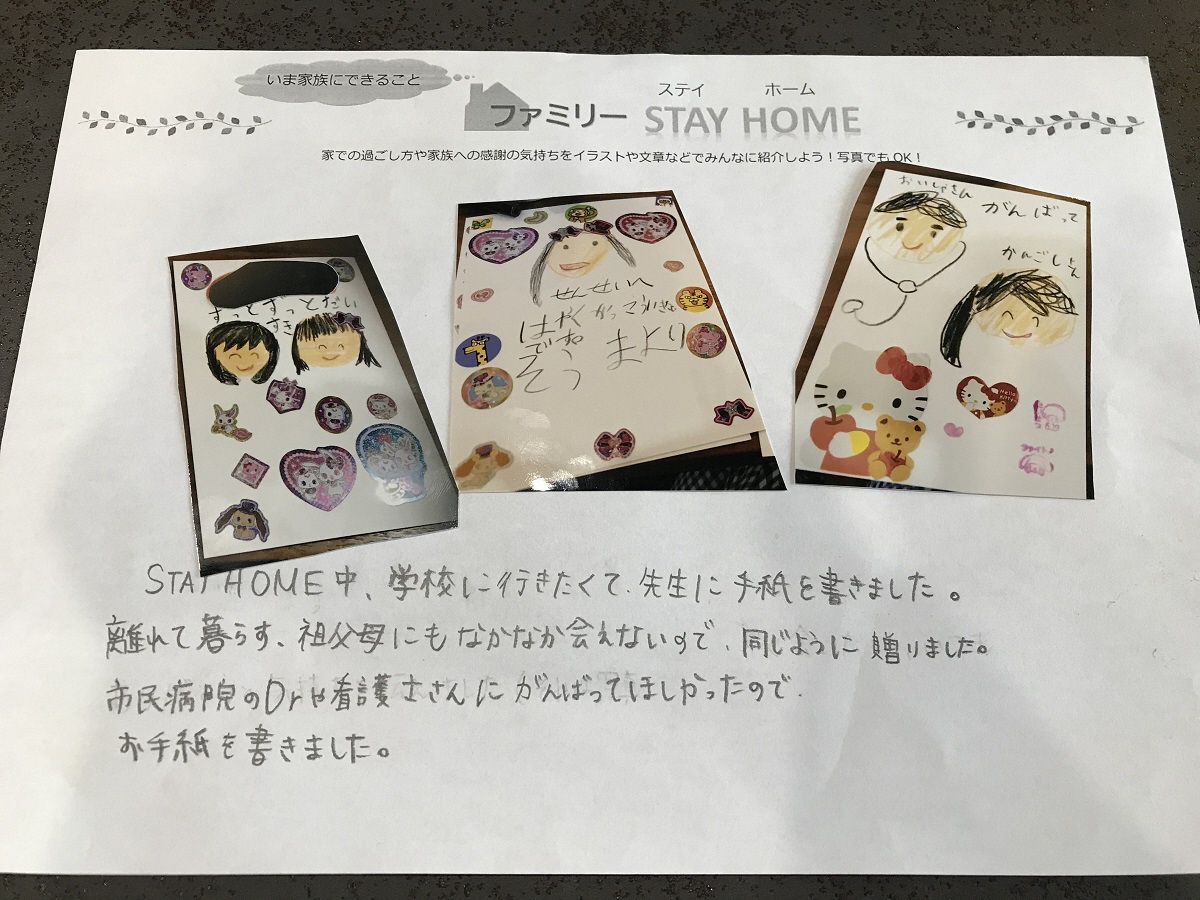 いま家族にできること
ステイ ホーム
ファミリー STAY HOME
家での過ごし方や家族への感謝の気持ちをイラストや文章などでみんなに紹介しよう！写真でもOK！
ずっとずっとだい
すき
せんせいへ
はやくがっこういきたい
です
まより
おいしゃさん
がんばって
かんごしさん
Hello Kitty
STAY HOME中、学校に行きたくて、先生に手紙を書きました。
離れて暮らす、祖父母にもなかなか会えないので、同じように贈りました。
市民病院のDrや看護士さんにがんばってほしかったので、
お手紙を書きました。